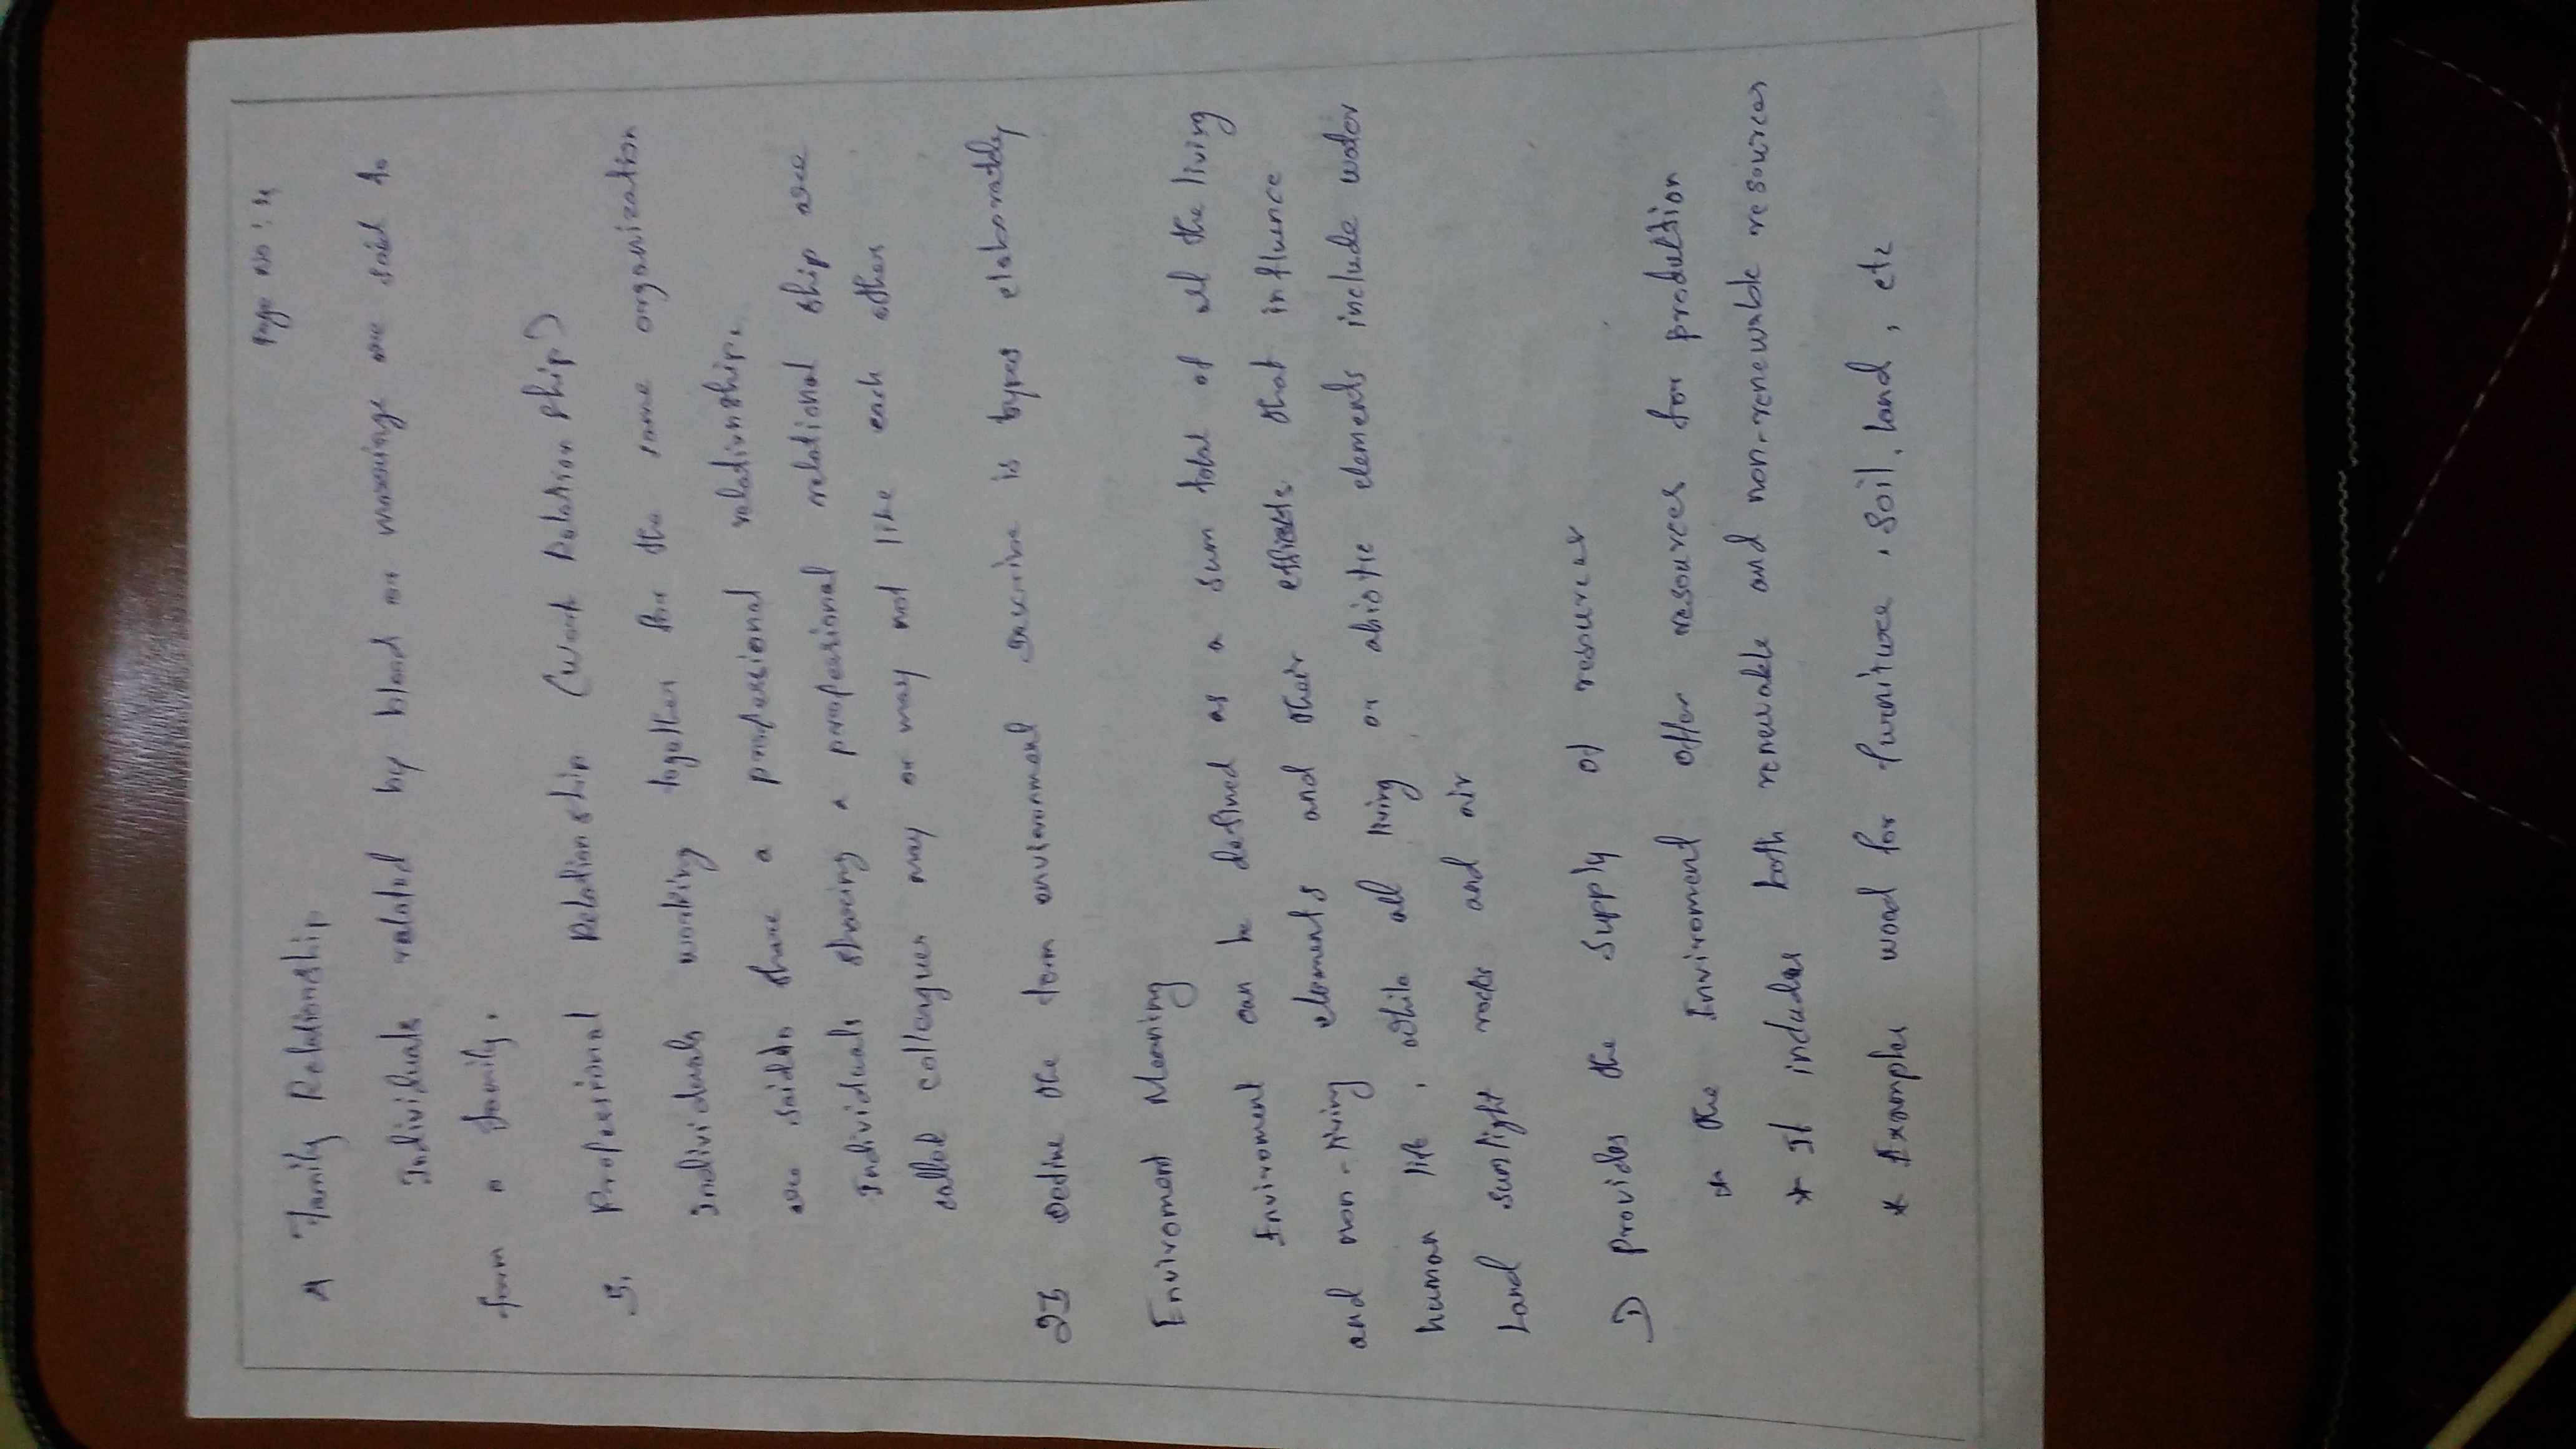 Page No: 4
4 Family Relationship
Individuals related by blood or marriage are said to
form a family.
5. Professional Relationship (Work Relation ship)
Individuals working together for the same organization
are saidto share a professional relationship.
Individuals sharing a professional relational ship are
called colleagues may or may not like each other
2I Define the term environment Describe is types elaborately
Enviroment Meaning
Enviroment can be defined as a sum total of all the living
and non-living elements and their effects that influence
human life, while all living or abiotic elements include water
Land sunlight rocks and air
1) Provides the Supply of resources
* The Enviroment offer resources for production
* It includes both renewable and non-renewable resources
* Examples wood for furniture, soil, land, etc